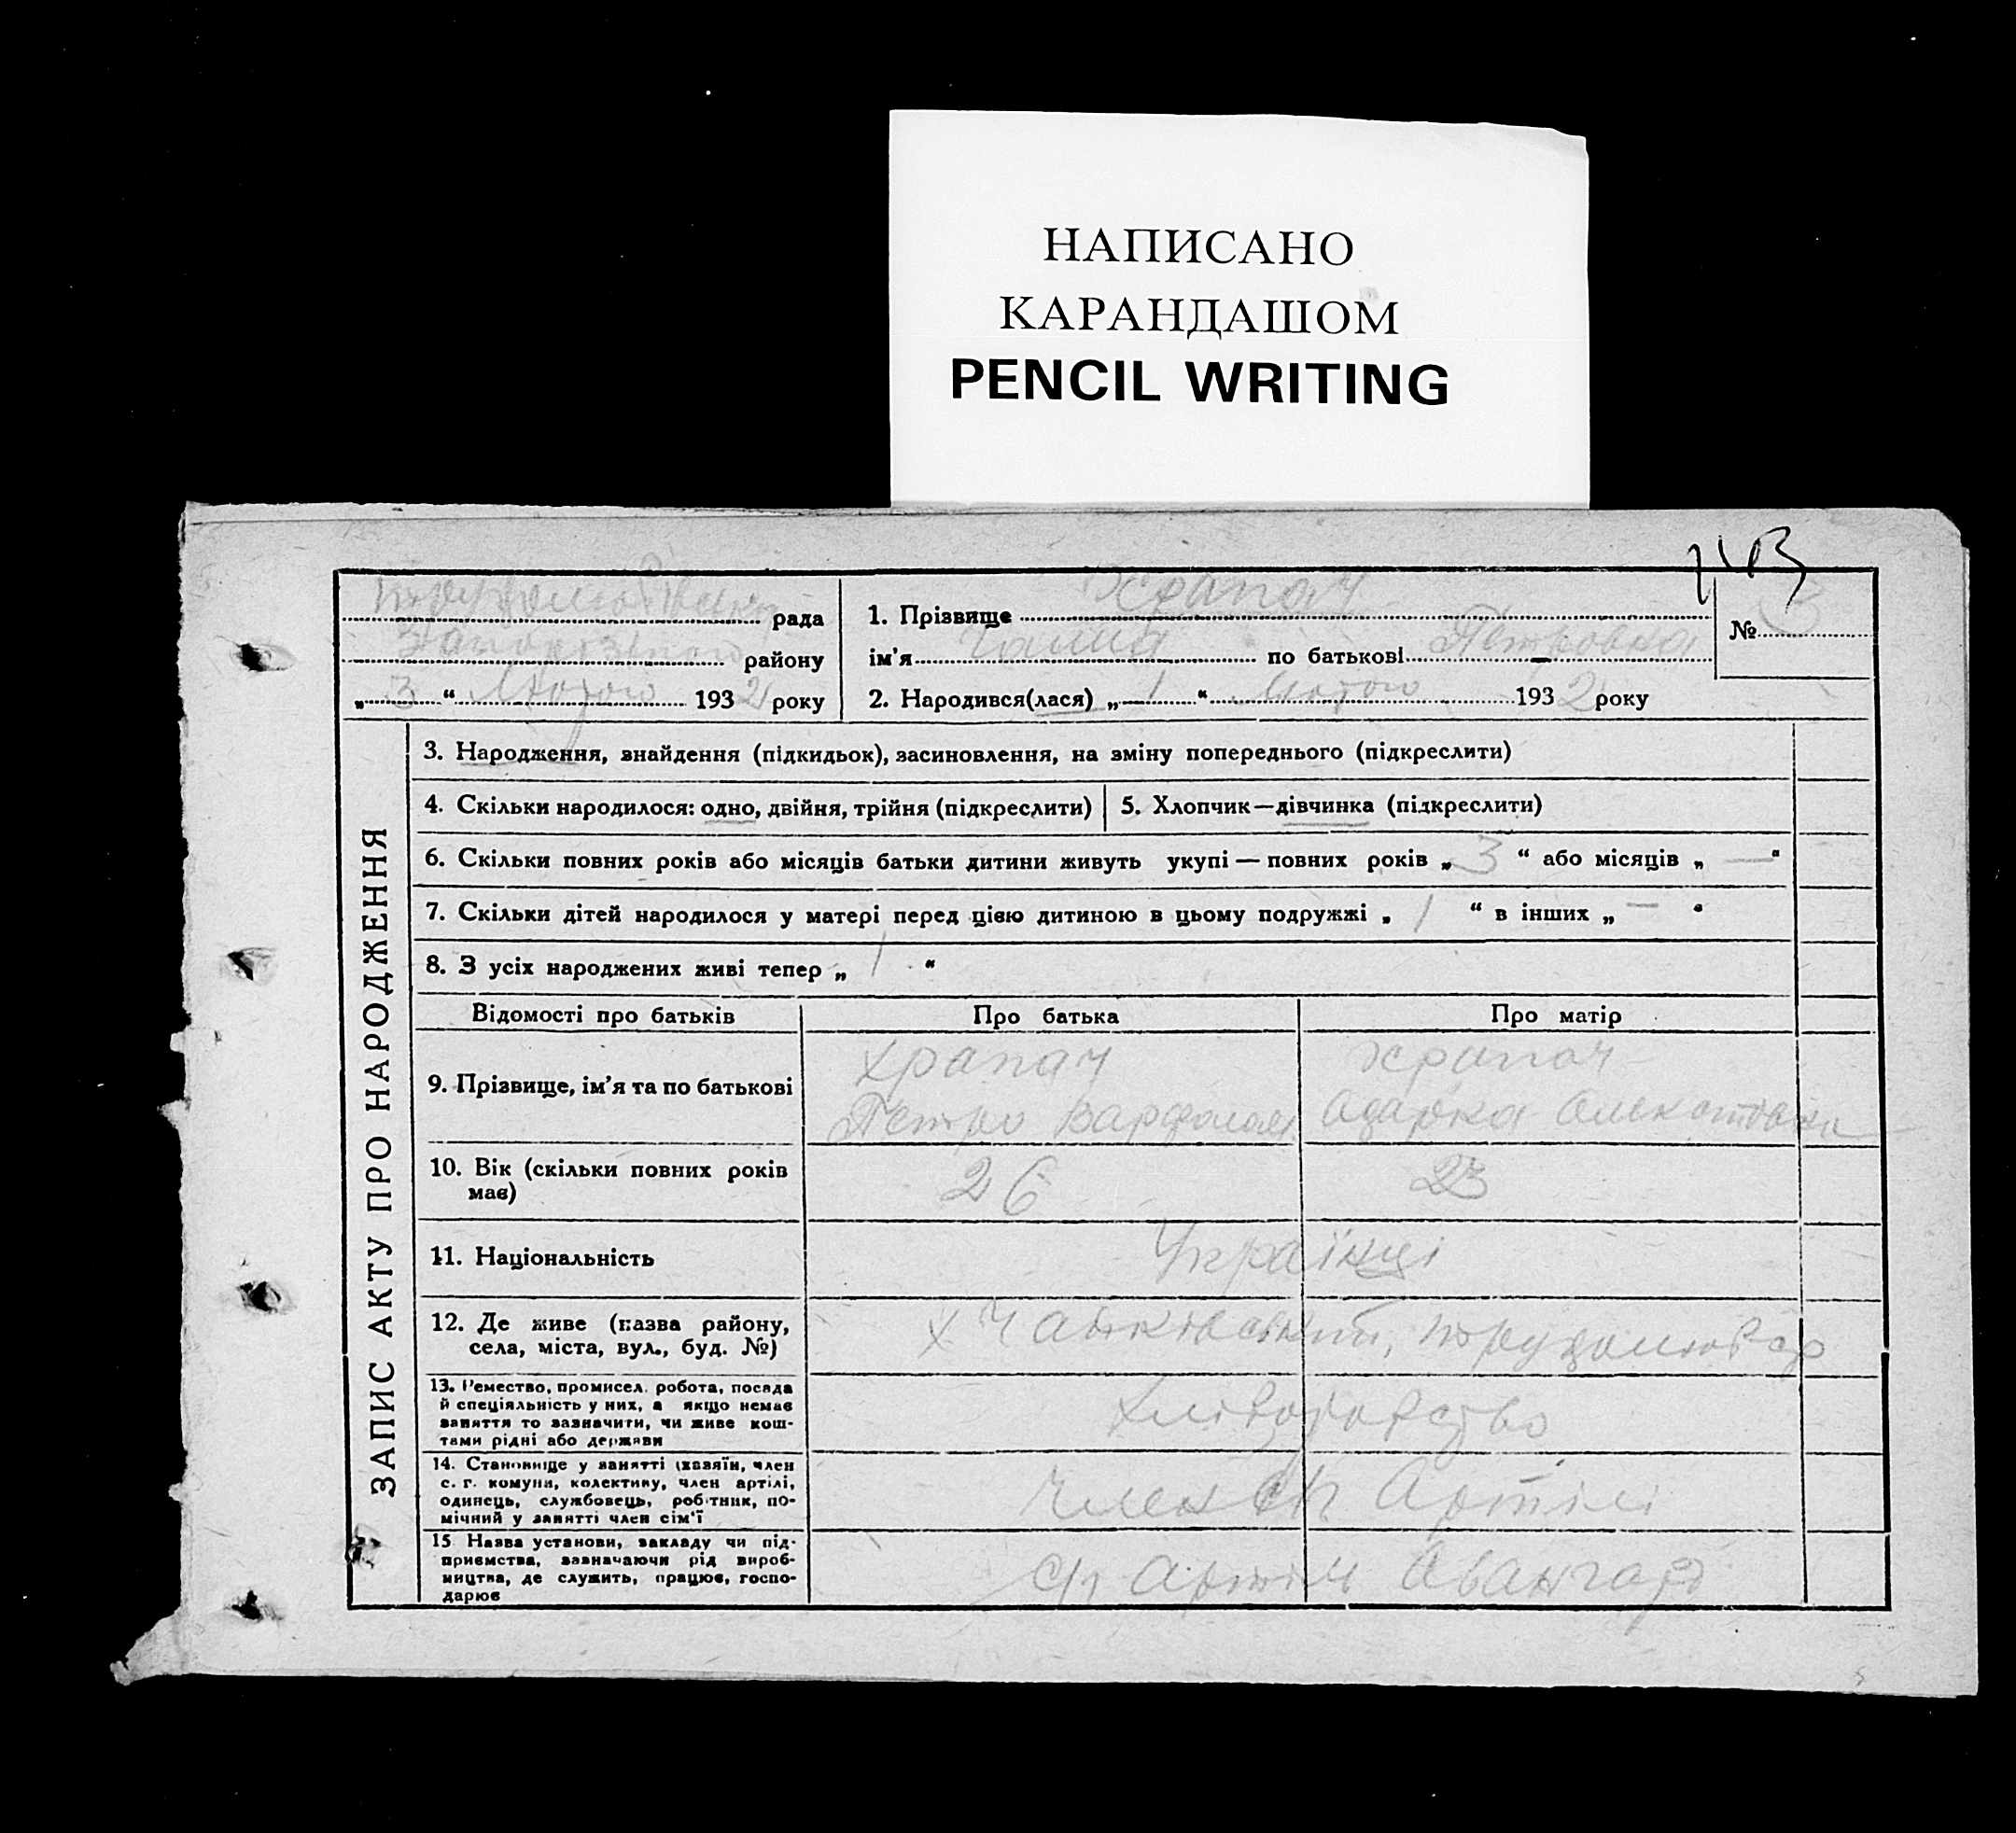 НАПИСАНО
КАРАНДАШОМ
PENCIL WRITING
рада
району
„ 3 “ Лютого 1932 року
1. Прізвище Храпач
ім’я Галина по батькові Петровна
№ 3
2. Народився(лася) „ 1 “ Лютого 1932 року
ЗАПИС АКТУ ПРО НАРОДЖЕННЯ
3. Народження, знайдення (підкидьок), засиновлення, на зміну попереднього (підкреслити)
4. Скільки народилося: одно, двійня, трійня (підкреслити) 5. Хлопчик—дівчинка (підкреслити)
6. Скільки повних років або місяців батьки дитини живуть укупі — повних років „ 3 “ або місяців „ — “
7. Скільки дітей народилося у матері перед цією дитиною в цьому подружжі „ 1 “ в інших „ — “
8. З усіх народжених живі тепер „ 1 “
Відомості про батьків Про батька Про матір
9. Прізвище, ім’я та по батькові
Храпач
Петро
Храпач
Одарка
10. Вік (скільки повних років
має)
26 23
11. Національність Українці
12. Де живе (назва району,
села, міста, вул., буд. №)
13. Ремество, промисел, робота, посада
й спеціяльність у них, а якщо немає
заняття то зазначити, чи живе кош-
тами рідні або держави
Хліборобство
14. Становище у занятті (хазяїн, член
с. г. комуни, колективу, член артілі,
одинець, службовець, робітник, по-
мічний у занятті член сім’ї
Член сп Артілі
15 Назва установи, закладу чи під-
приємства, зазначаючи рід вироб-
ництва, де служить, працює, госпо-
дарює
с/г Артіль Авангард